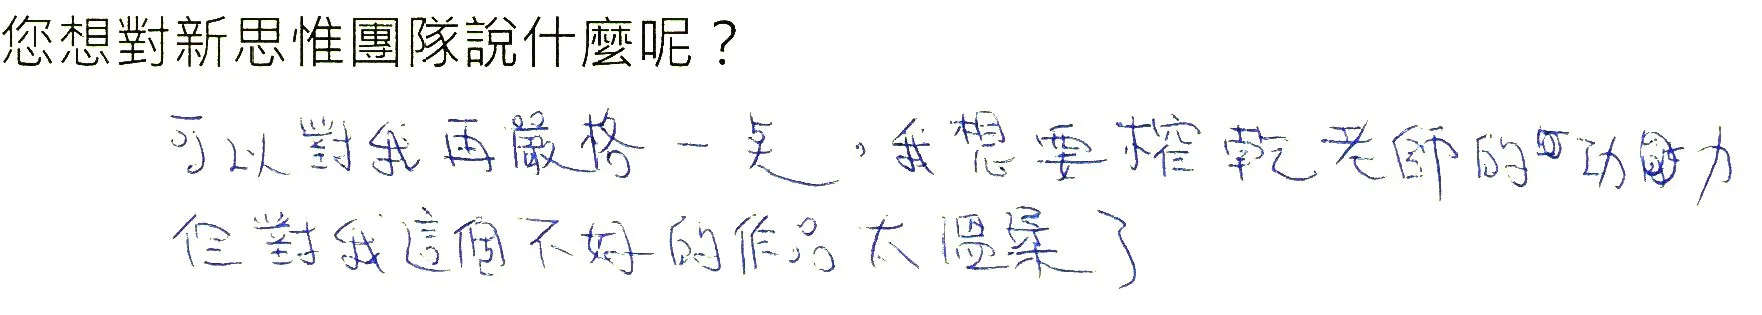 您想對新思惟團隊說什麼呢？
可以對我再嚴格一点，我想要榨乾老師的功力
但對我這個不好的作品太溫柔了